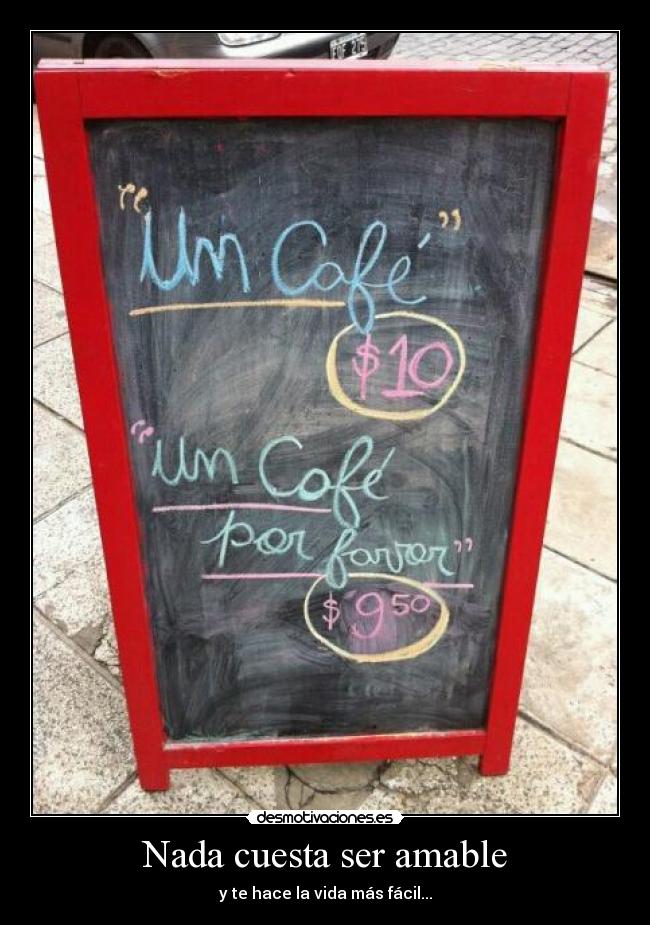 “Un Café”
$10
“Un Café
por favor”
$ 9 50
desmotivaciones.es
Nada cuesta ser amable
y te hace la vida más fácil...